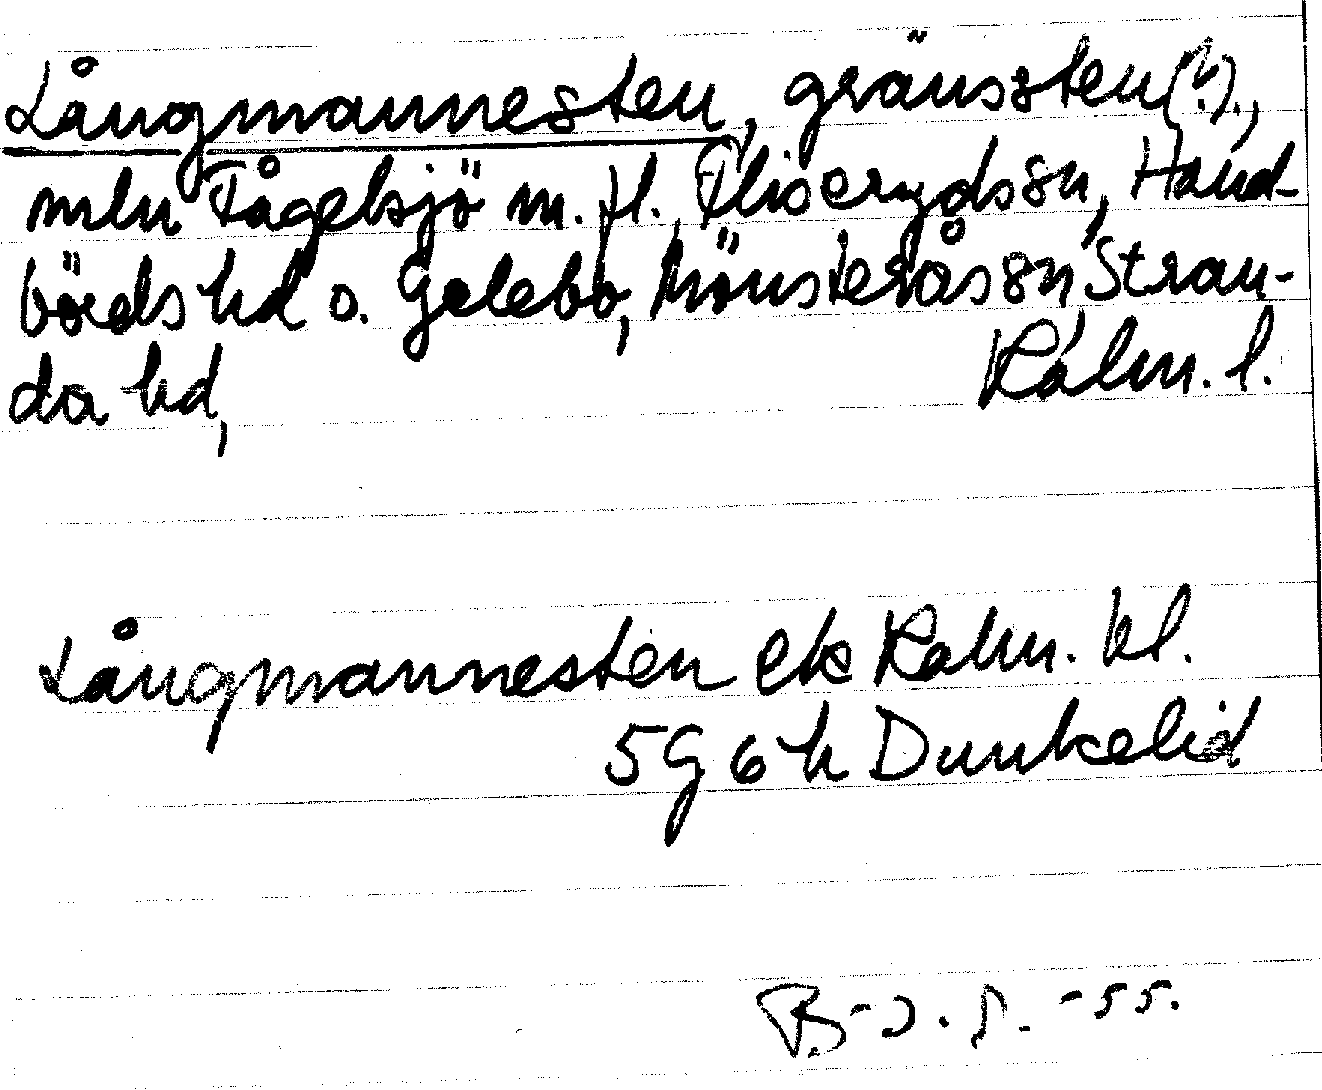 Långmannesten, gränssten(?).,
mln Fågelsjö m.fl. Fliserydssn, Hand-
börds hd o. Gelebo, Mönsteråssn Stran-
da hd, Kalm. l.
Långmannesten ek Kalm. bl.
5G6h Dunkelid
B-J. P. -55.